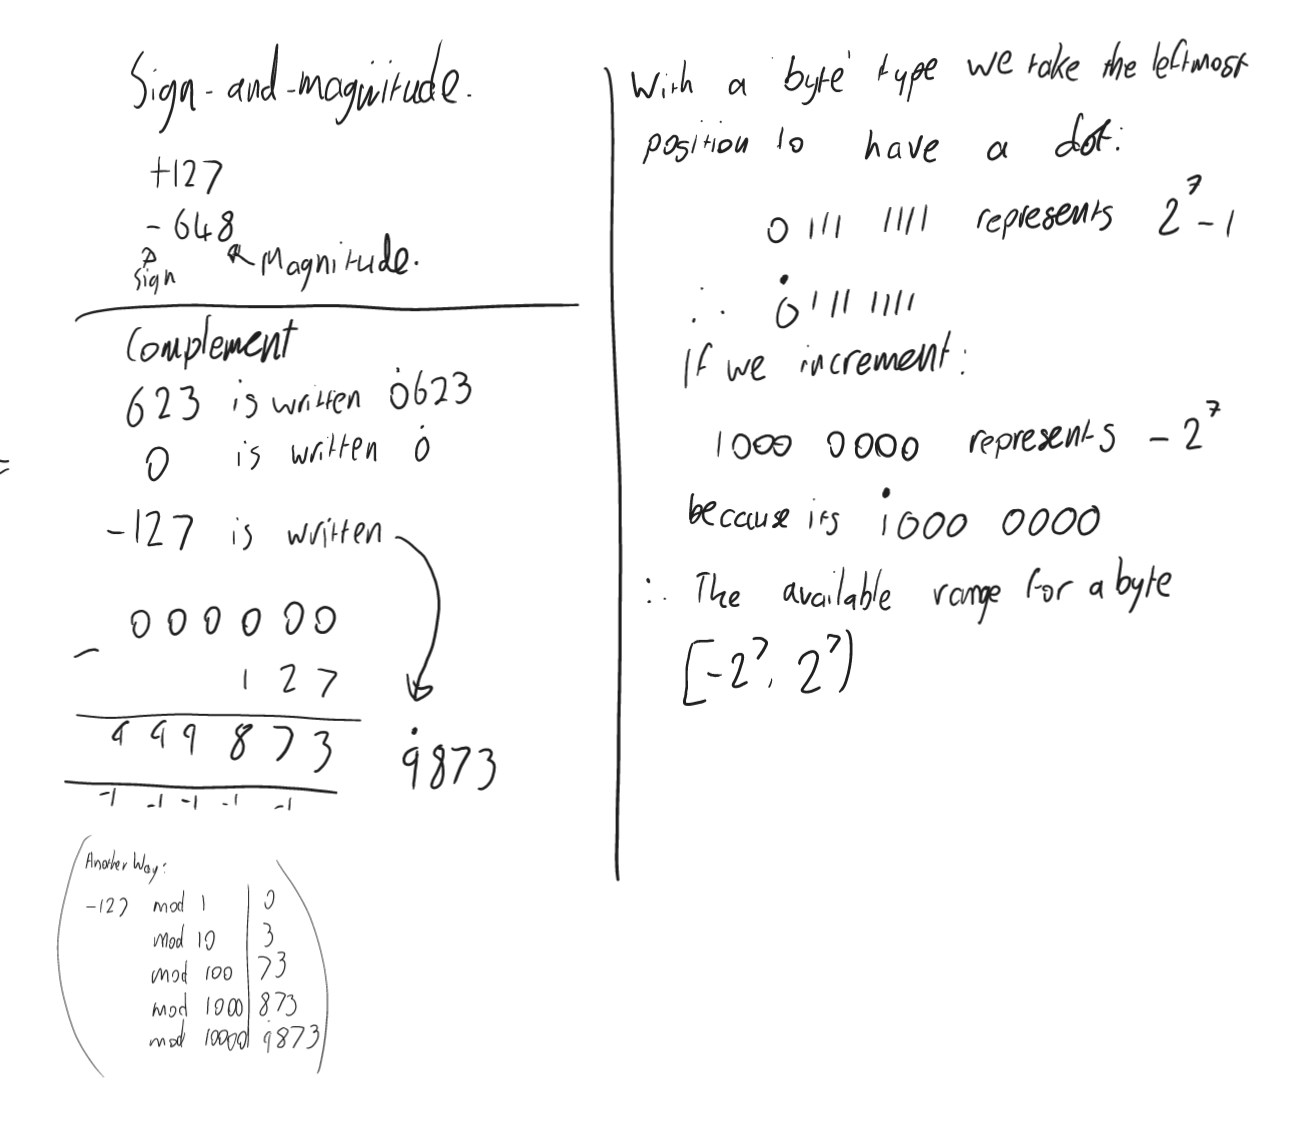 Sign-and-magnitude.
+127
-648
Sign
Magnitude.
Complement
623 is written 0̇623
0 is written 0̇
-127 is written
000000
- 127
999873
-1 -1 -1 -1 -1
9̇873
(Another Way:
-127 mod 1 | 0
mod 10 | 3
mod 100 | 73
mod 1000 | 873
mod 10000 | 9̇873)
With a 'byte' type we take the leftmost
position to have a dot:
0111 1111 represents 2⁷-1
∴ 0̇111 1111
If we increment:
1000 0000 represents -2⁷
because its 1̇000 0000
∴ The available range for a byte
[-2⁷, 2⁷)